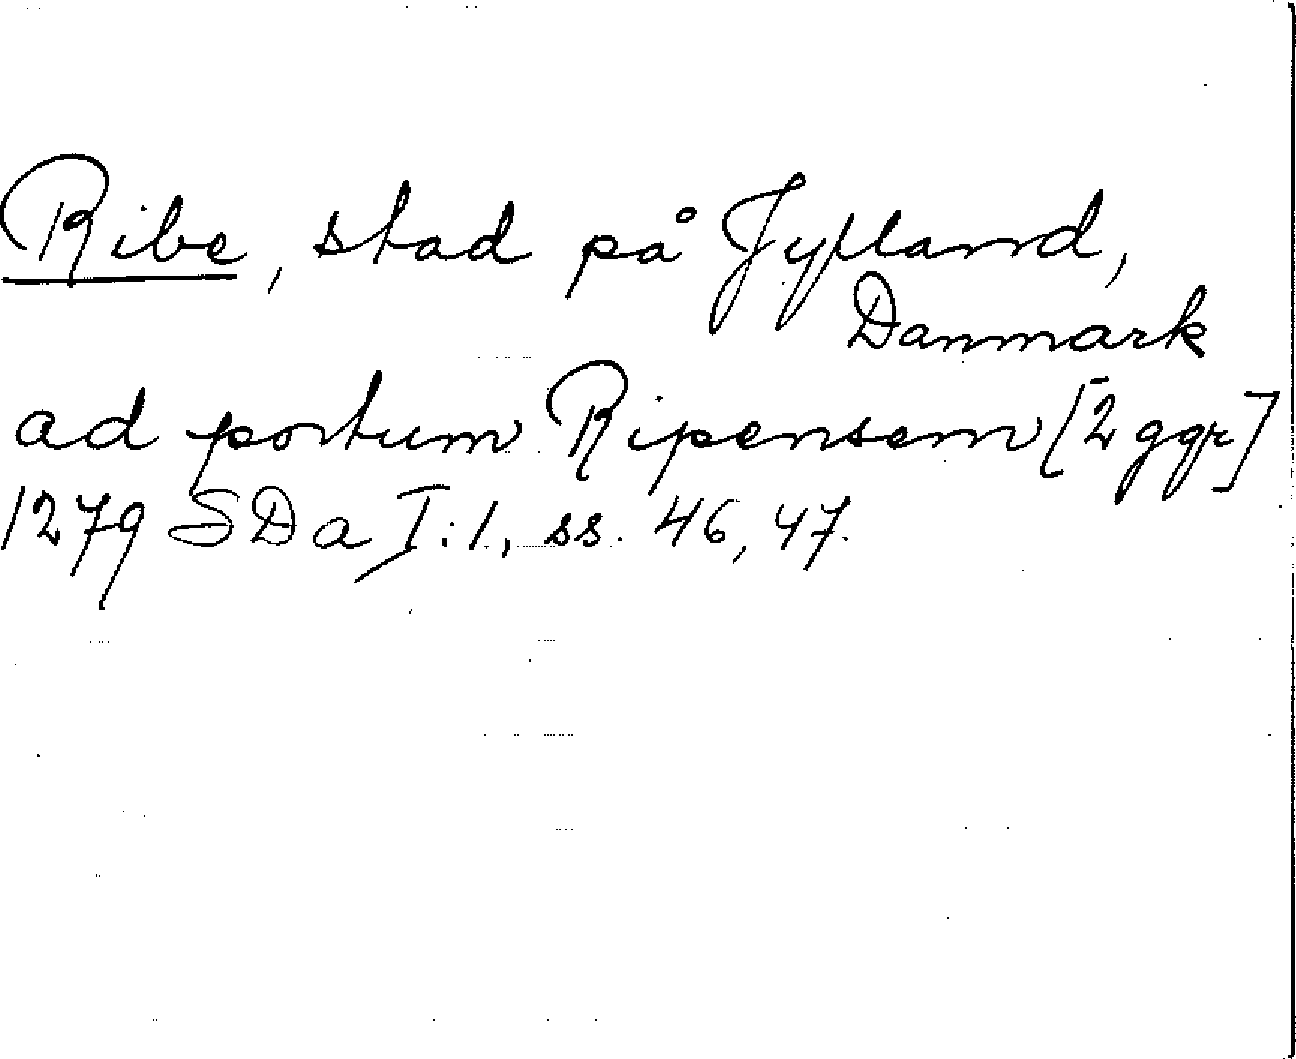 Ribe, stad på Jylland,
Danmark
ad portum Ripensem [2 ggr]
1279 SDa I:1, ss. 46, 47.